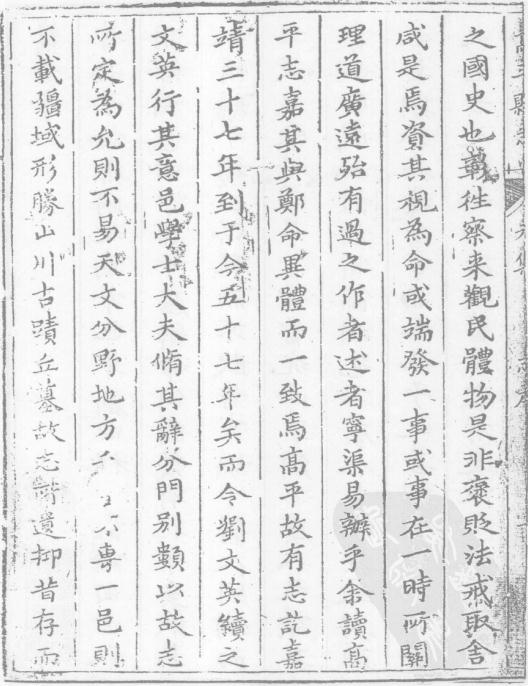 之國史也彰往察来觀民體物是非褒貶法戒取舍
咸是焉資其視為命或端發一事或事在一時所關
理道廣遠殆有過之作者述者寧渠易辦乎余讀髙
平志嘉其與鄭命異體而一致焉髙平故有志訖嘉
靖三十七年到于今五十七年矣而令劉文英續之
文英行其意邑學士大夫脩其辭分門别類以故志
所定為允則不易天文分野地方不專一邑則
不載疆域形勝山川古蹟丘墓故志所遺抑昔存而